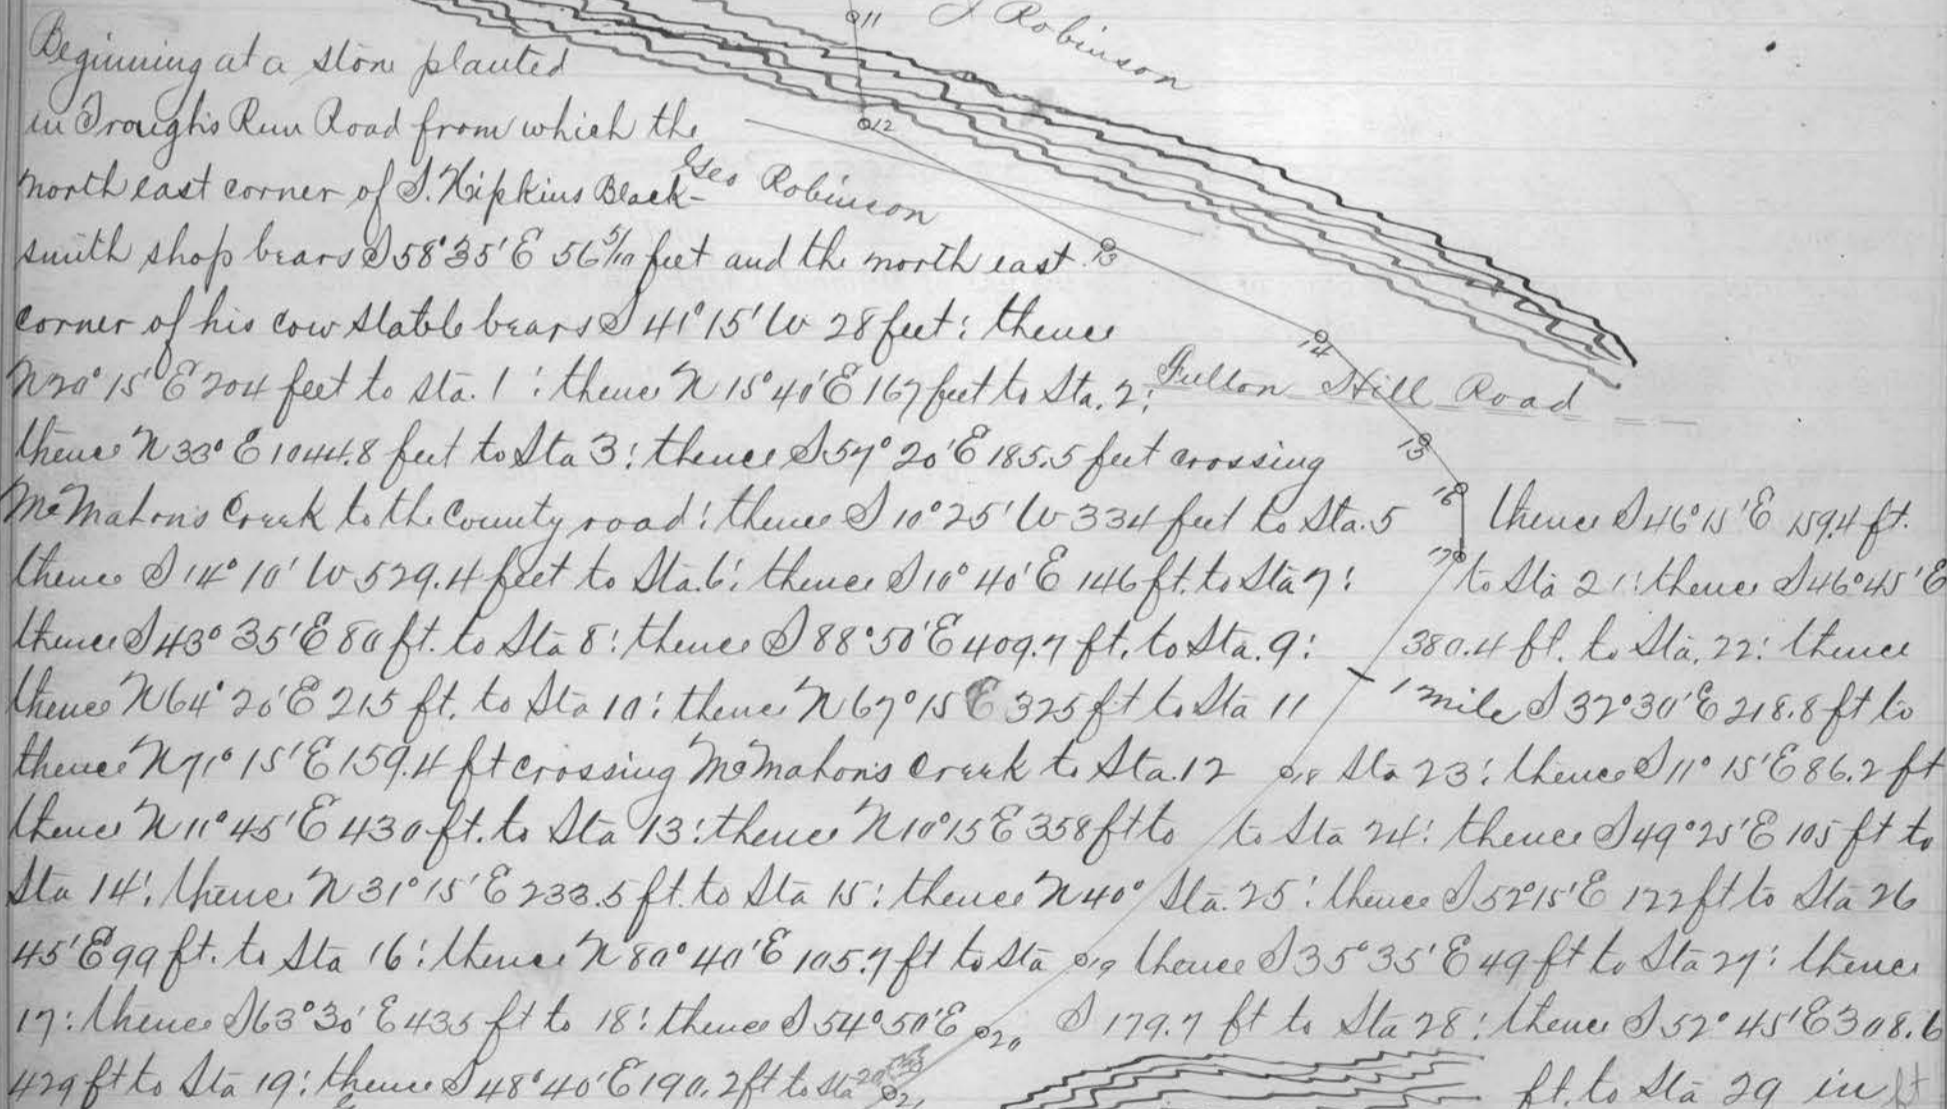 11
J Robinson
Beginning at a stone planted
in Troughs Run Road from which the
12
north east corner of S. Hipkins Black-
Geo Robinson
smith shop bears S 58°35' E 56 5/10 feet and the north east
13
corner of his cow stable bears S 41°15' W 28 feet: thence
14
N 20°15' E 204 feet to sta. 1: thence N 15°40' E 167 feet to Sta. 2:
Fulton Hill Road
thence N 33° E 1044.8 feet to Sta 3: thence S 57°20' E 185.5 feet crossing
15
McMahon's Creek to the County road: thence S 10°25' W 334 feet to Sta. 5
16
thence S 14°10' W 529.4 feet to Sta. 6: thence S 10°40' E 146 ft. to Sta 7:
17
thence S 43°35' E 80 ft. to Sta 8: thence S 88°50' E 409.7 ft. to Sta. 9:
thence N 64°20' E 215 ft. to Sta 10: thence N 67°15 E 325 ft to Sta 11
thence N 71°15' E 159.4 ft crossing McMahon's Creek to Sta. 12
18
thence N 11°45' E 430 ft. to Sta 13: thence N 10°15 E 358 ft to
Sta 14: thence N 31°15' E 233.5 ft. to Sta 15: thence N 40°
45' E 99 ft. to Sta 16: thence N 80°40' E 105.7 ft to Sta
19
17: thence S 63°30' E 435 ft to 18: thence S 54°50' E
20
429 ft to Sta 19: thence S 48°40' E 190.2 ft to Sta 20
21
thence S 46°15' E 159.4 ft.
to Sta 21: thence S 46°45' E
380.4 ft. to Sta. 22: thence
1 mile
S 32°30' E 218.8 ft to
Sta 23: thence S 11°15' E 86.2 ft
to Sta 24: thence S 49°25' E 105 ft to
Sta. 25: thence S 52°15' E 122 ft to Sta 26
thence S 35°35' E 49 ft to Sta 27: thence
S 179.7 ft to Sta 28: thence S 52°45' E 308.6
ft. to Sta 29 in